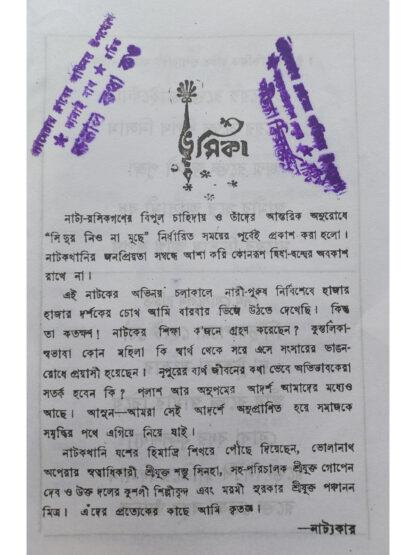 ভূমিকা
নাট্য-রসিকগণের বিপুল চাহিদায় ও তাঁদের আন্তরিক অনুরোধে
“সিঁদুর নিও না মুছে” নির্ধারিত সময়ের পূর্বেই প্রকাশ করা হলো।
নাটকখানির জনপ্রিয়তা সম্বন্ধে আশা করি কোনরূপ দ্বিধা-দ্বন্দ্বের অবকাশ
রাখে না।
এই নাটকের অভিনয় চলাকালে নারী-পুরুষ নির্বিশেষে হাজার
হাজার দর্শকের চোখ আমি বারবার ভিজে উঠতে দেখেছি। কিন্তু
তা কতক্ষণ! নাটকের শিক্ষা ক’জনে গ্রহণ করেছেন? কুন্তলিকা-
স্বভাবা কোন মহিলা কি স্বার্থ থেকে সরে এসে সংসারের ভাঙন-
রোধে প্রয়াসী হয়েছেন। নুপুরের ব্যর্থ জীবনের কথা ভেবে অভিভাবকেরা
সতর্ক হবেন কি? পলাশ আর অনুপমের আদর্শ আমাদের মধ্যেও
আছে। আসুন—আমরা সেই আদর্শে অনুপ্রাণিত হয়ে সমাজকে
সমৃদ্ধি পথে এগিয়ে নিয়ে যাই।
নাটকখানি যশের হিমাদ্রি শিখরে পৌঁছে দিয়েছেন, ভোলানাথ
অপেরার স্বত্বাধিকারী শ্রীযুক্ত শম্ভু সিনহা, সহ-পরিচালক শ্রীযুক্ত গোপেন
দেব ও উক্ত দলের কুশলী শিল্পীবৃন্দ এবং মরমী সুরকার শ্রীযুক্ত পঞ্চানন
মিত্র। এঁদের প্রত্যেকের কাছে আমি কৃতজ্ঞ।
—নাট্যকার